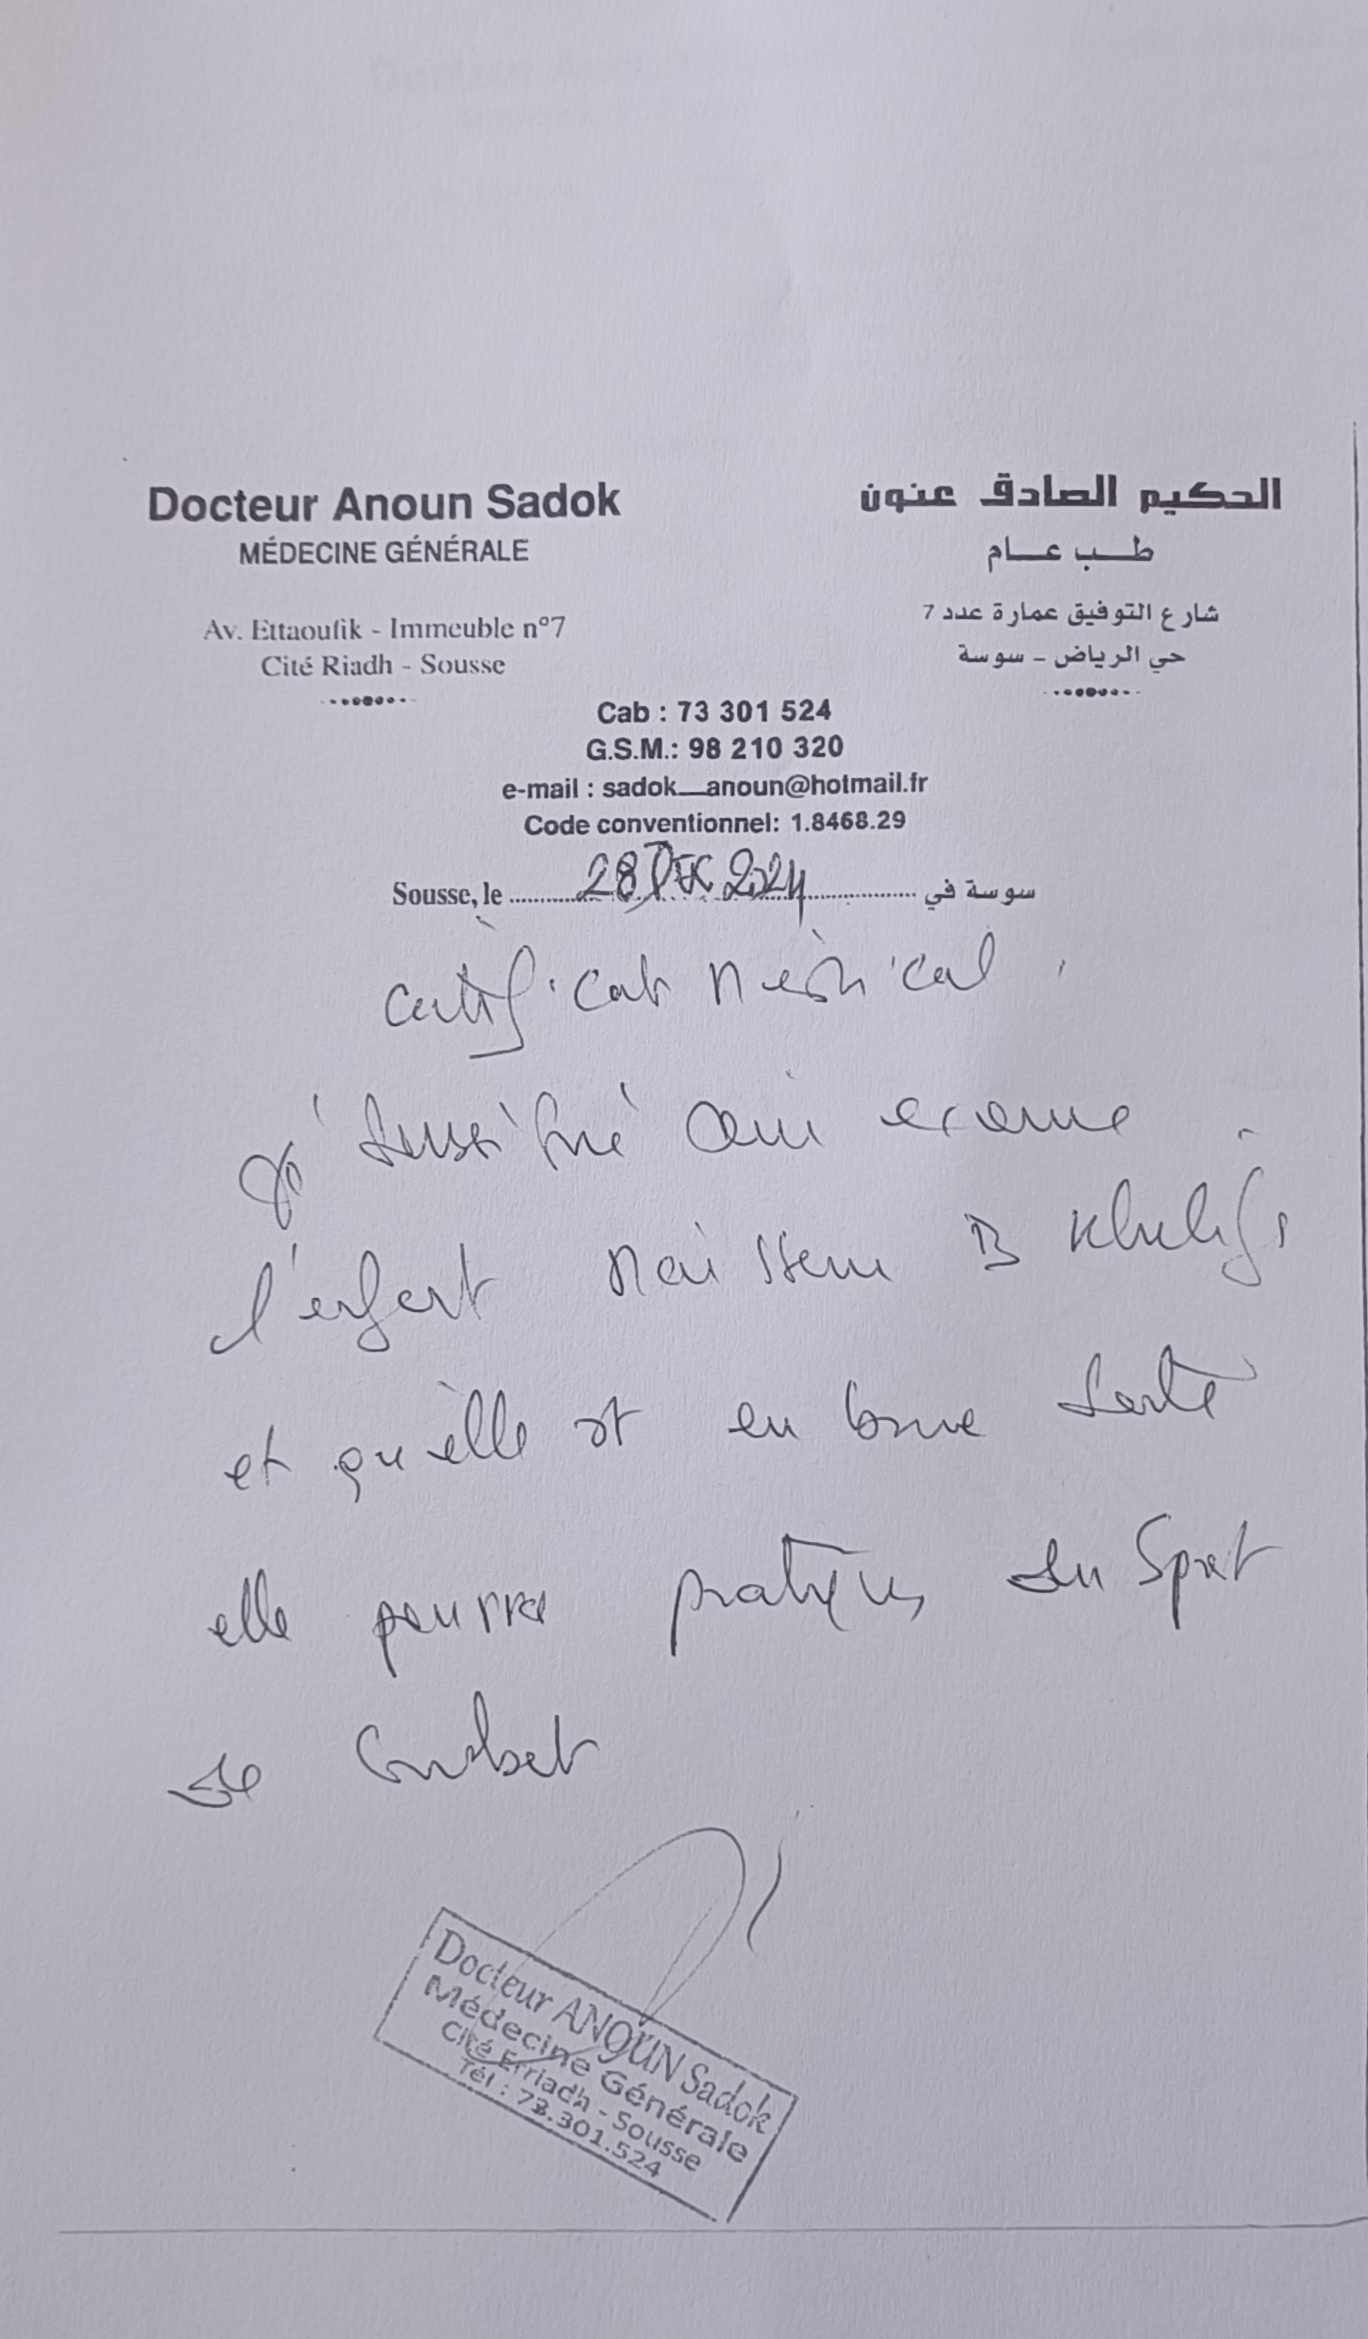 Docteur Anoun Sadok
MÉDECINE GÉNÉRALE
Av. Ettaoufik - Immeuble n°7
Cité Riadh - Sousse
الحكيم الصادق عنون
طب عام
شارع التوفيق عمارة عدد 7
حي الرياض - سوسة
Cab : 73 301 524
G.S.M.: 98 210 320
e-mail : sadok_anoun@hotmail.fr
Code conventionnel: 1.8468.29
Sousse, le 28 DEC 2024 سوسة في
Certificat Médical
Je soussigné avoir examiné
l'enfant B Khelifa
et qu'elle est en bonne santé
elle pourra pratiquer du Sport
de Combat
Docteur ANOUN Sadok
Médecine Générale
Cité Erriadh - Sousse
Tél : 73.301.524